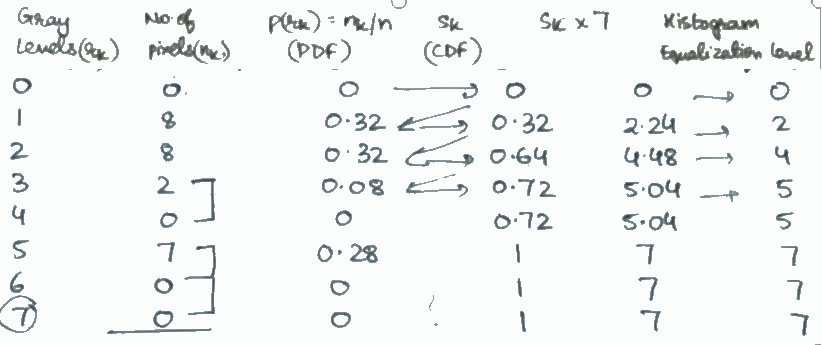 Gray Levels(rk) No. of pixels(nk) p(rk) = nk/n (PDF) Sk (CDF) Sk x 7 Histogram Equalization Level
0 0 0 0 0 0
1 8 0.32 0.32 2.24 2
2 8 0.32 0.64 4.48 4
3 2 0.08 0.72 5.04 5
4 0 0 0.72 5.04 5
5 7 0.28 1 7 7
6 0 0 1 7 7
7 0 0 1 7 7